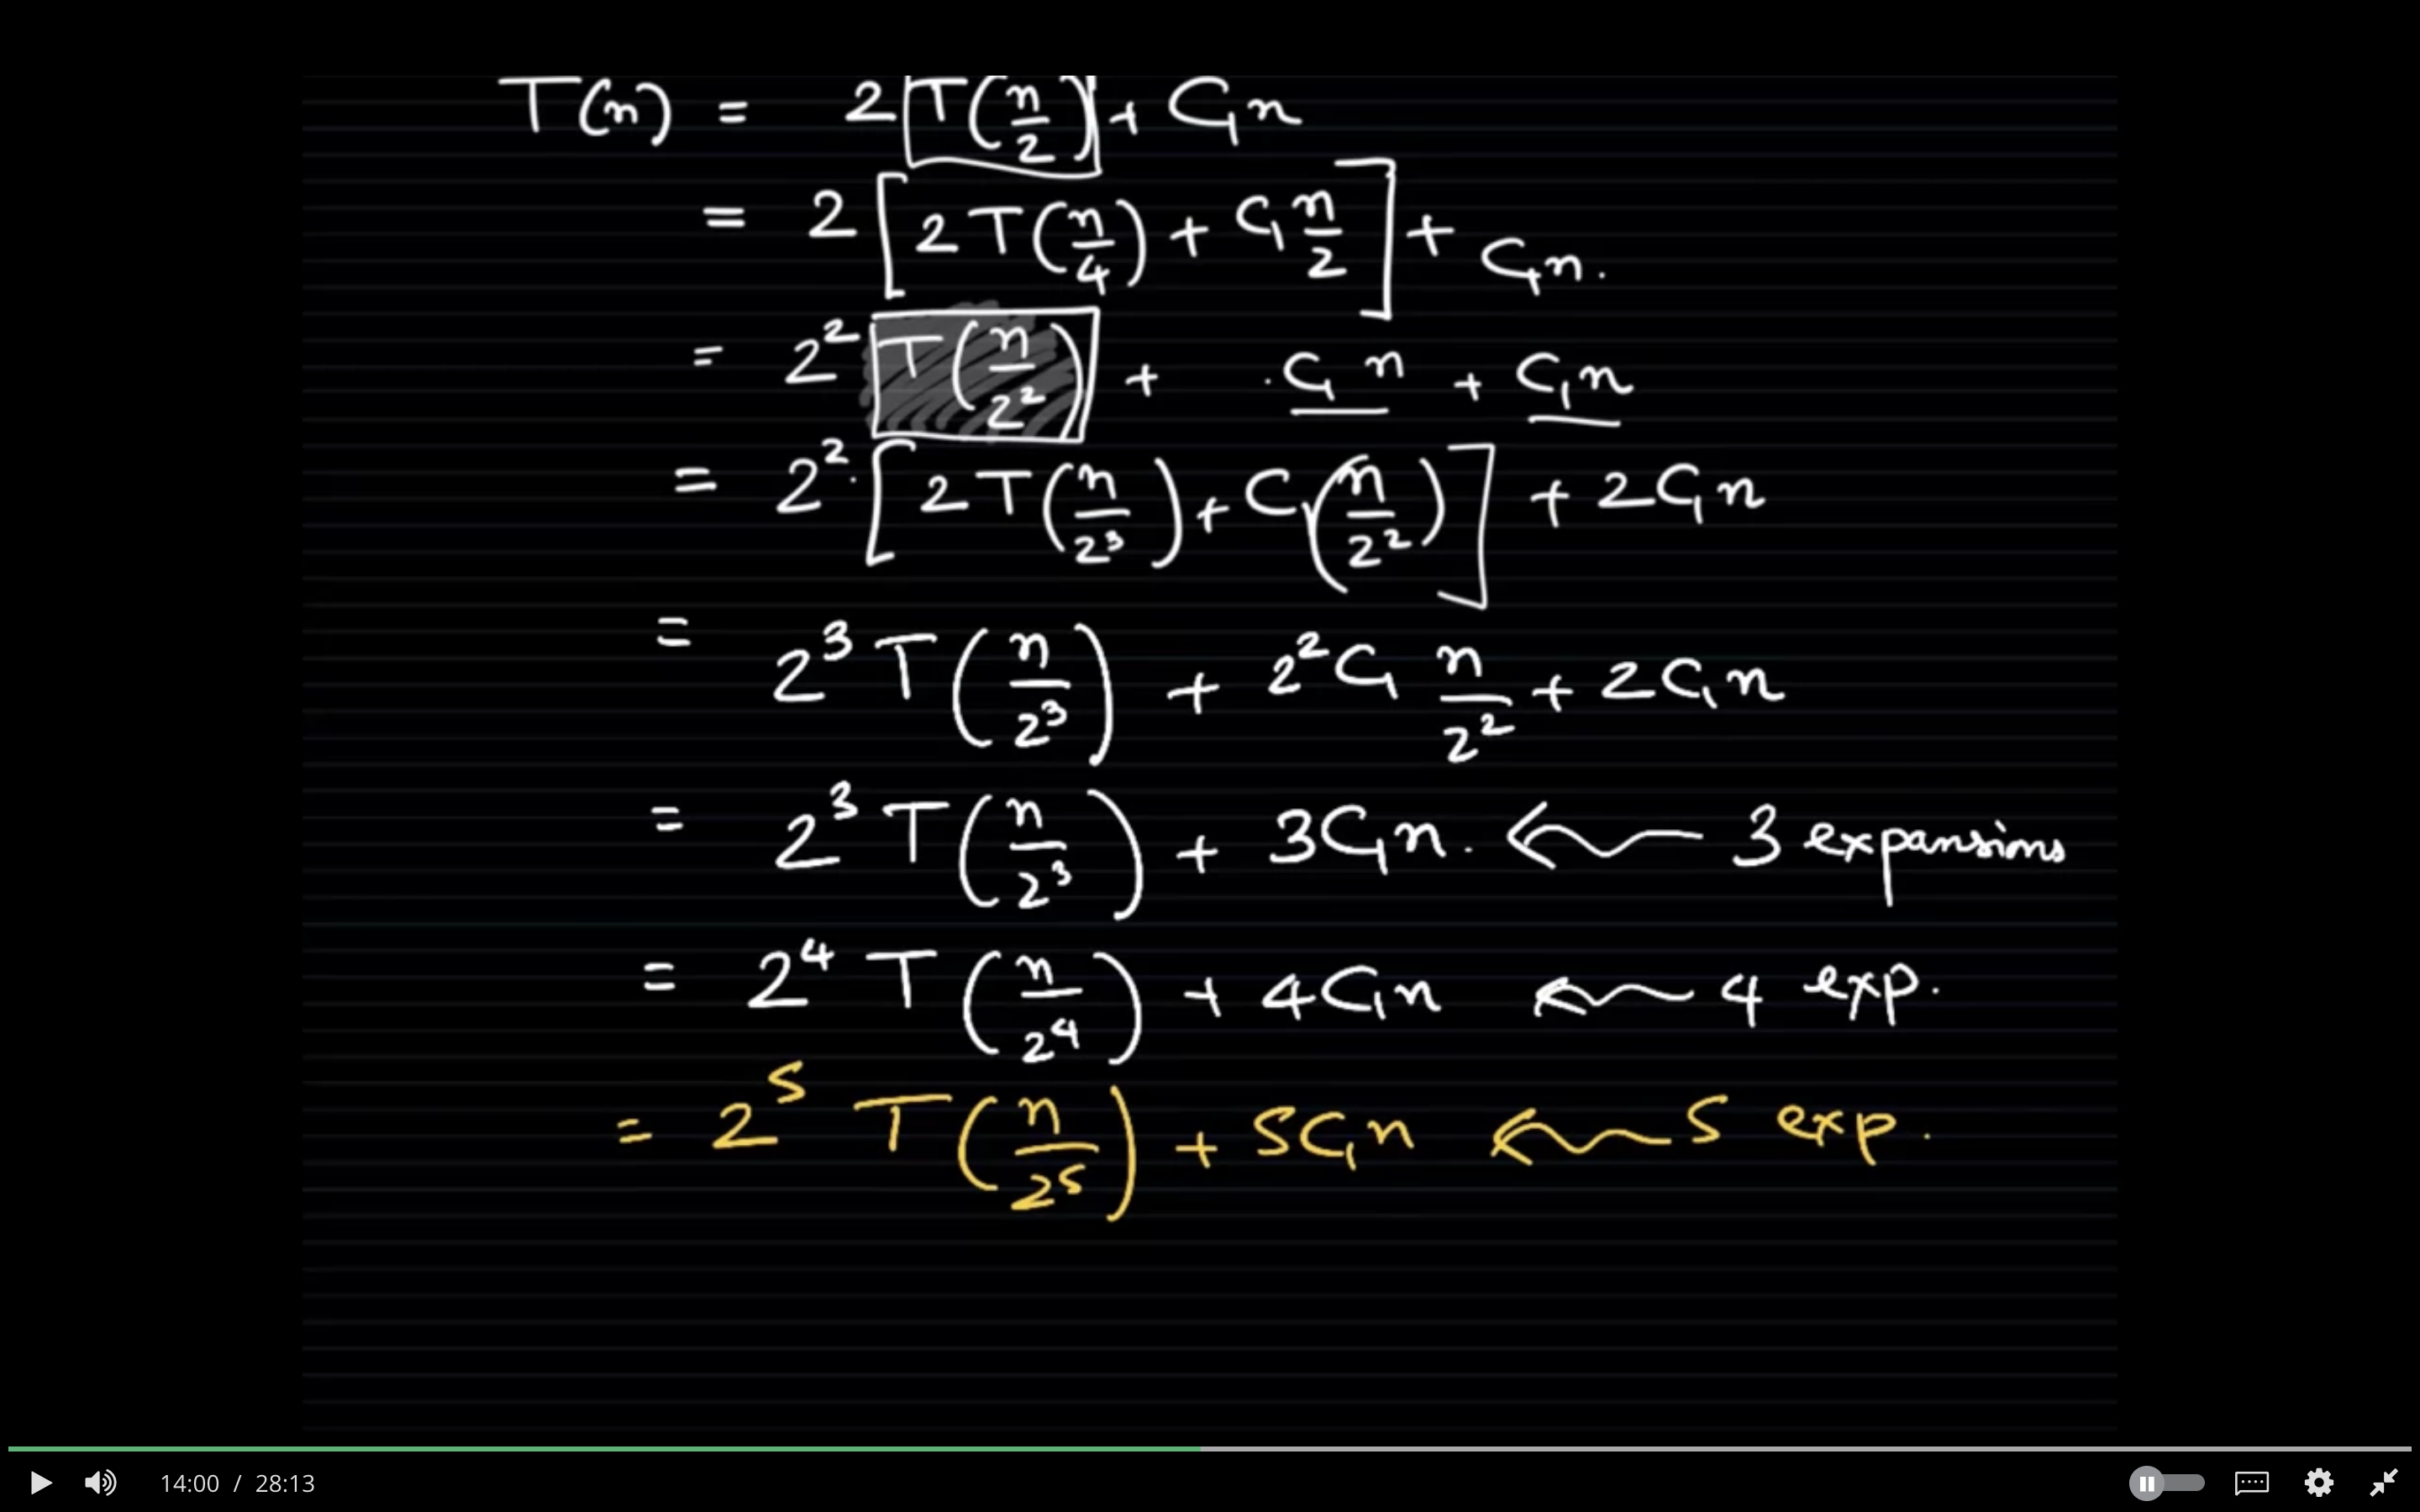 T(n) = 2 T(n/2) + C₁n
= 2 [ 2 T(n/4) + C₁ n/2 ] + C₁n.
= 2² T(n/2²) + C₁ n + C₁n
= 2² . [ 2 T(n/2³) + C₁(n/2²) ] + 2C₁n
= 2³ T(n/2³) + 2² C₁ n/2² + 2C₁n
= 2³ T(n/2³) + 3C₁n. ← 3 expansions
= 2⁴ T(n/2⁴) + 4C₁n ← 4 exp.
= 2⁵ T(n/2⁵) + 5C₁n ← 5 exp.
14:00 / 28:13